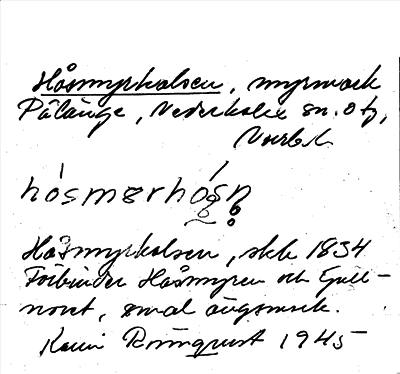 Håsmyrhalsen, myrmark
Pålänge, Nederkalix sn. o tg,
Norrb. l.
hósmørhósn
Håsmyrhalsen, skh 1834
Förbinder Håsmyren och
nont, smal ängsmark.
Karin Rönnqvist 1945